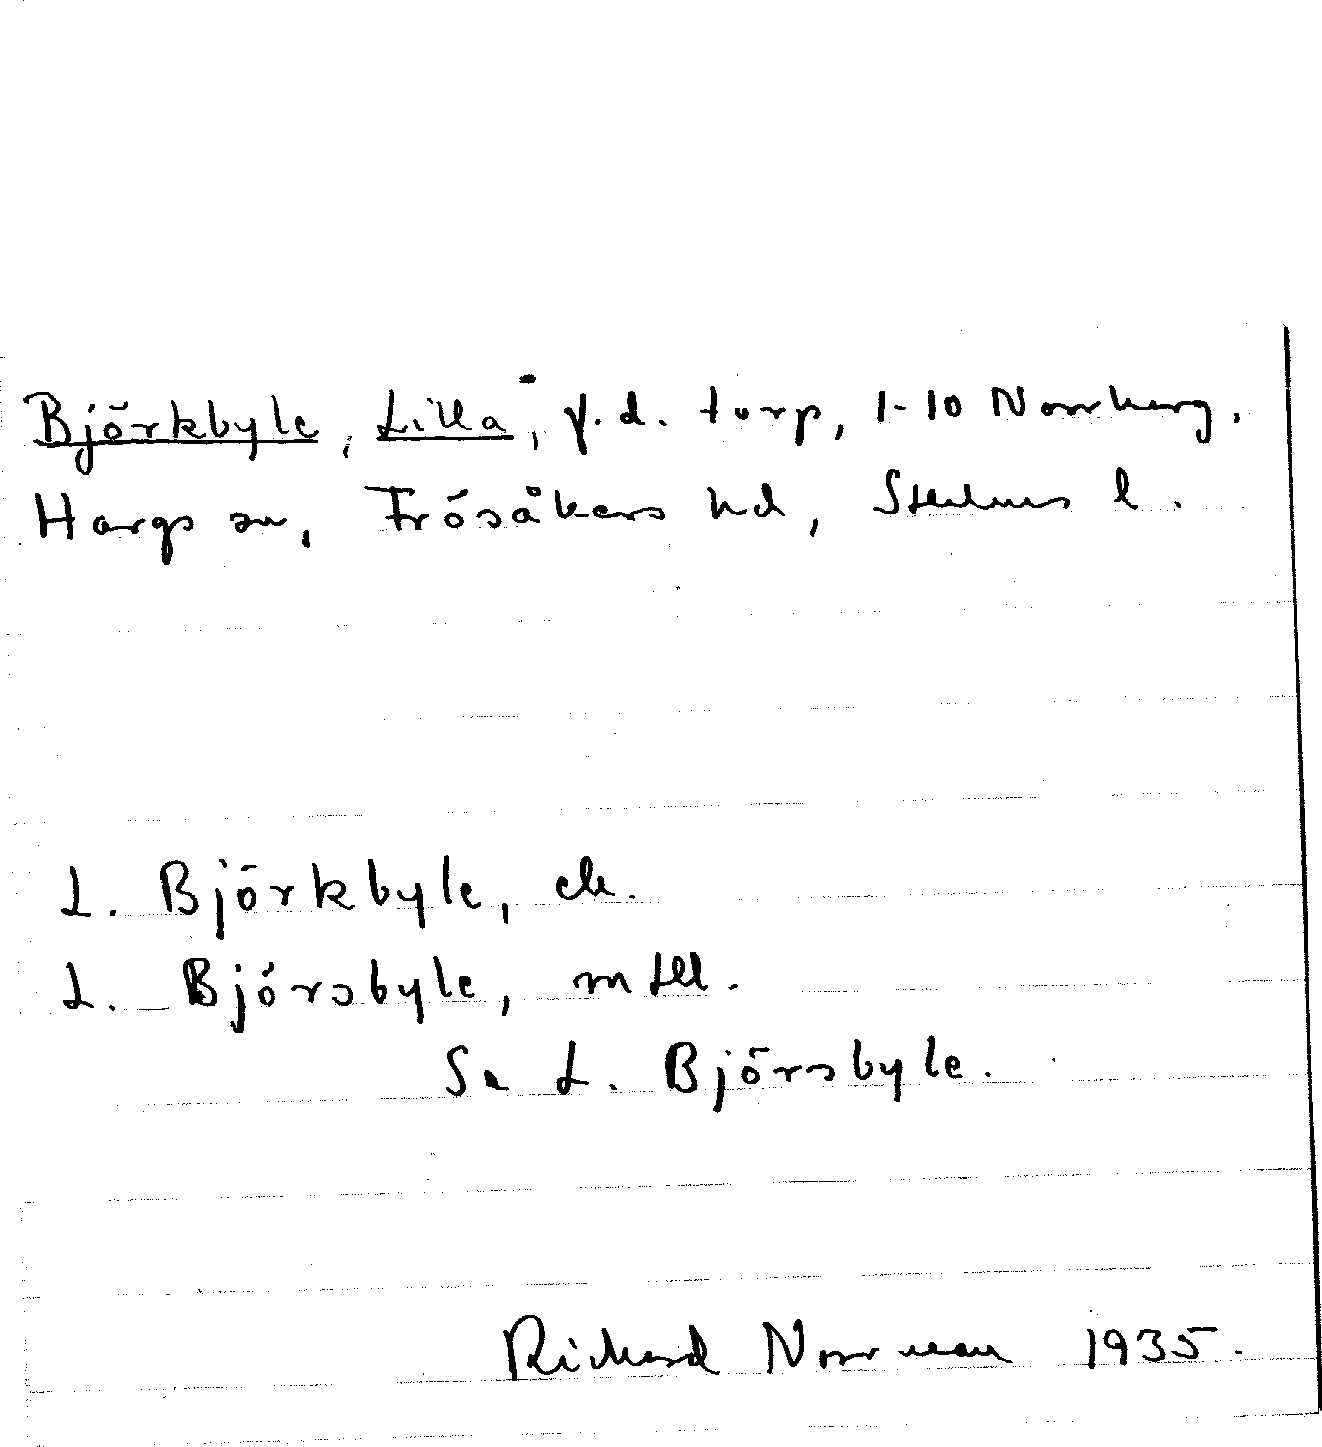 Björkbyle, Lilla, f.d. torp, 1-10 Norrberg,
Hargs sn, Frösåkers hd, Sthlms l.
L. Björkbyle, ek.
L. Björsbyle, mtll.
Se L. Björsbyle.
Rickard Norrman 1935.